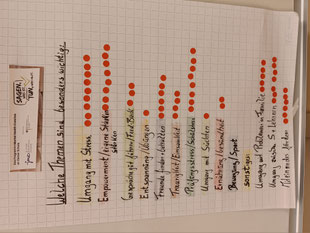 SAGEN
TUN
Welche Themen sind besonders wichtig?
Umgang mit Stress
Empowerment/eigene Stärken
Gespräche gut führen/Feedback
Entspannung/Übungen
Freunde finden/behalten
Traurigkeit/Einsamkeit
Prüfungsstress/Schulstress
Umgang mit Süchten
Ernährung/Gesundheit
Bewegung/Sport
sonstiges
Umgang mit Problemen in Familie
Umgang zwischen S. + Lehrern